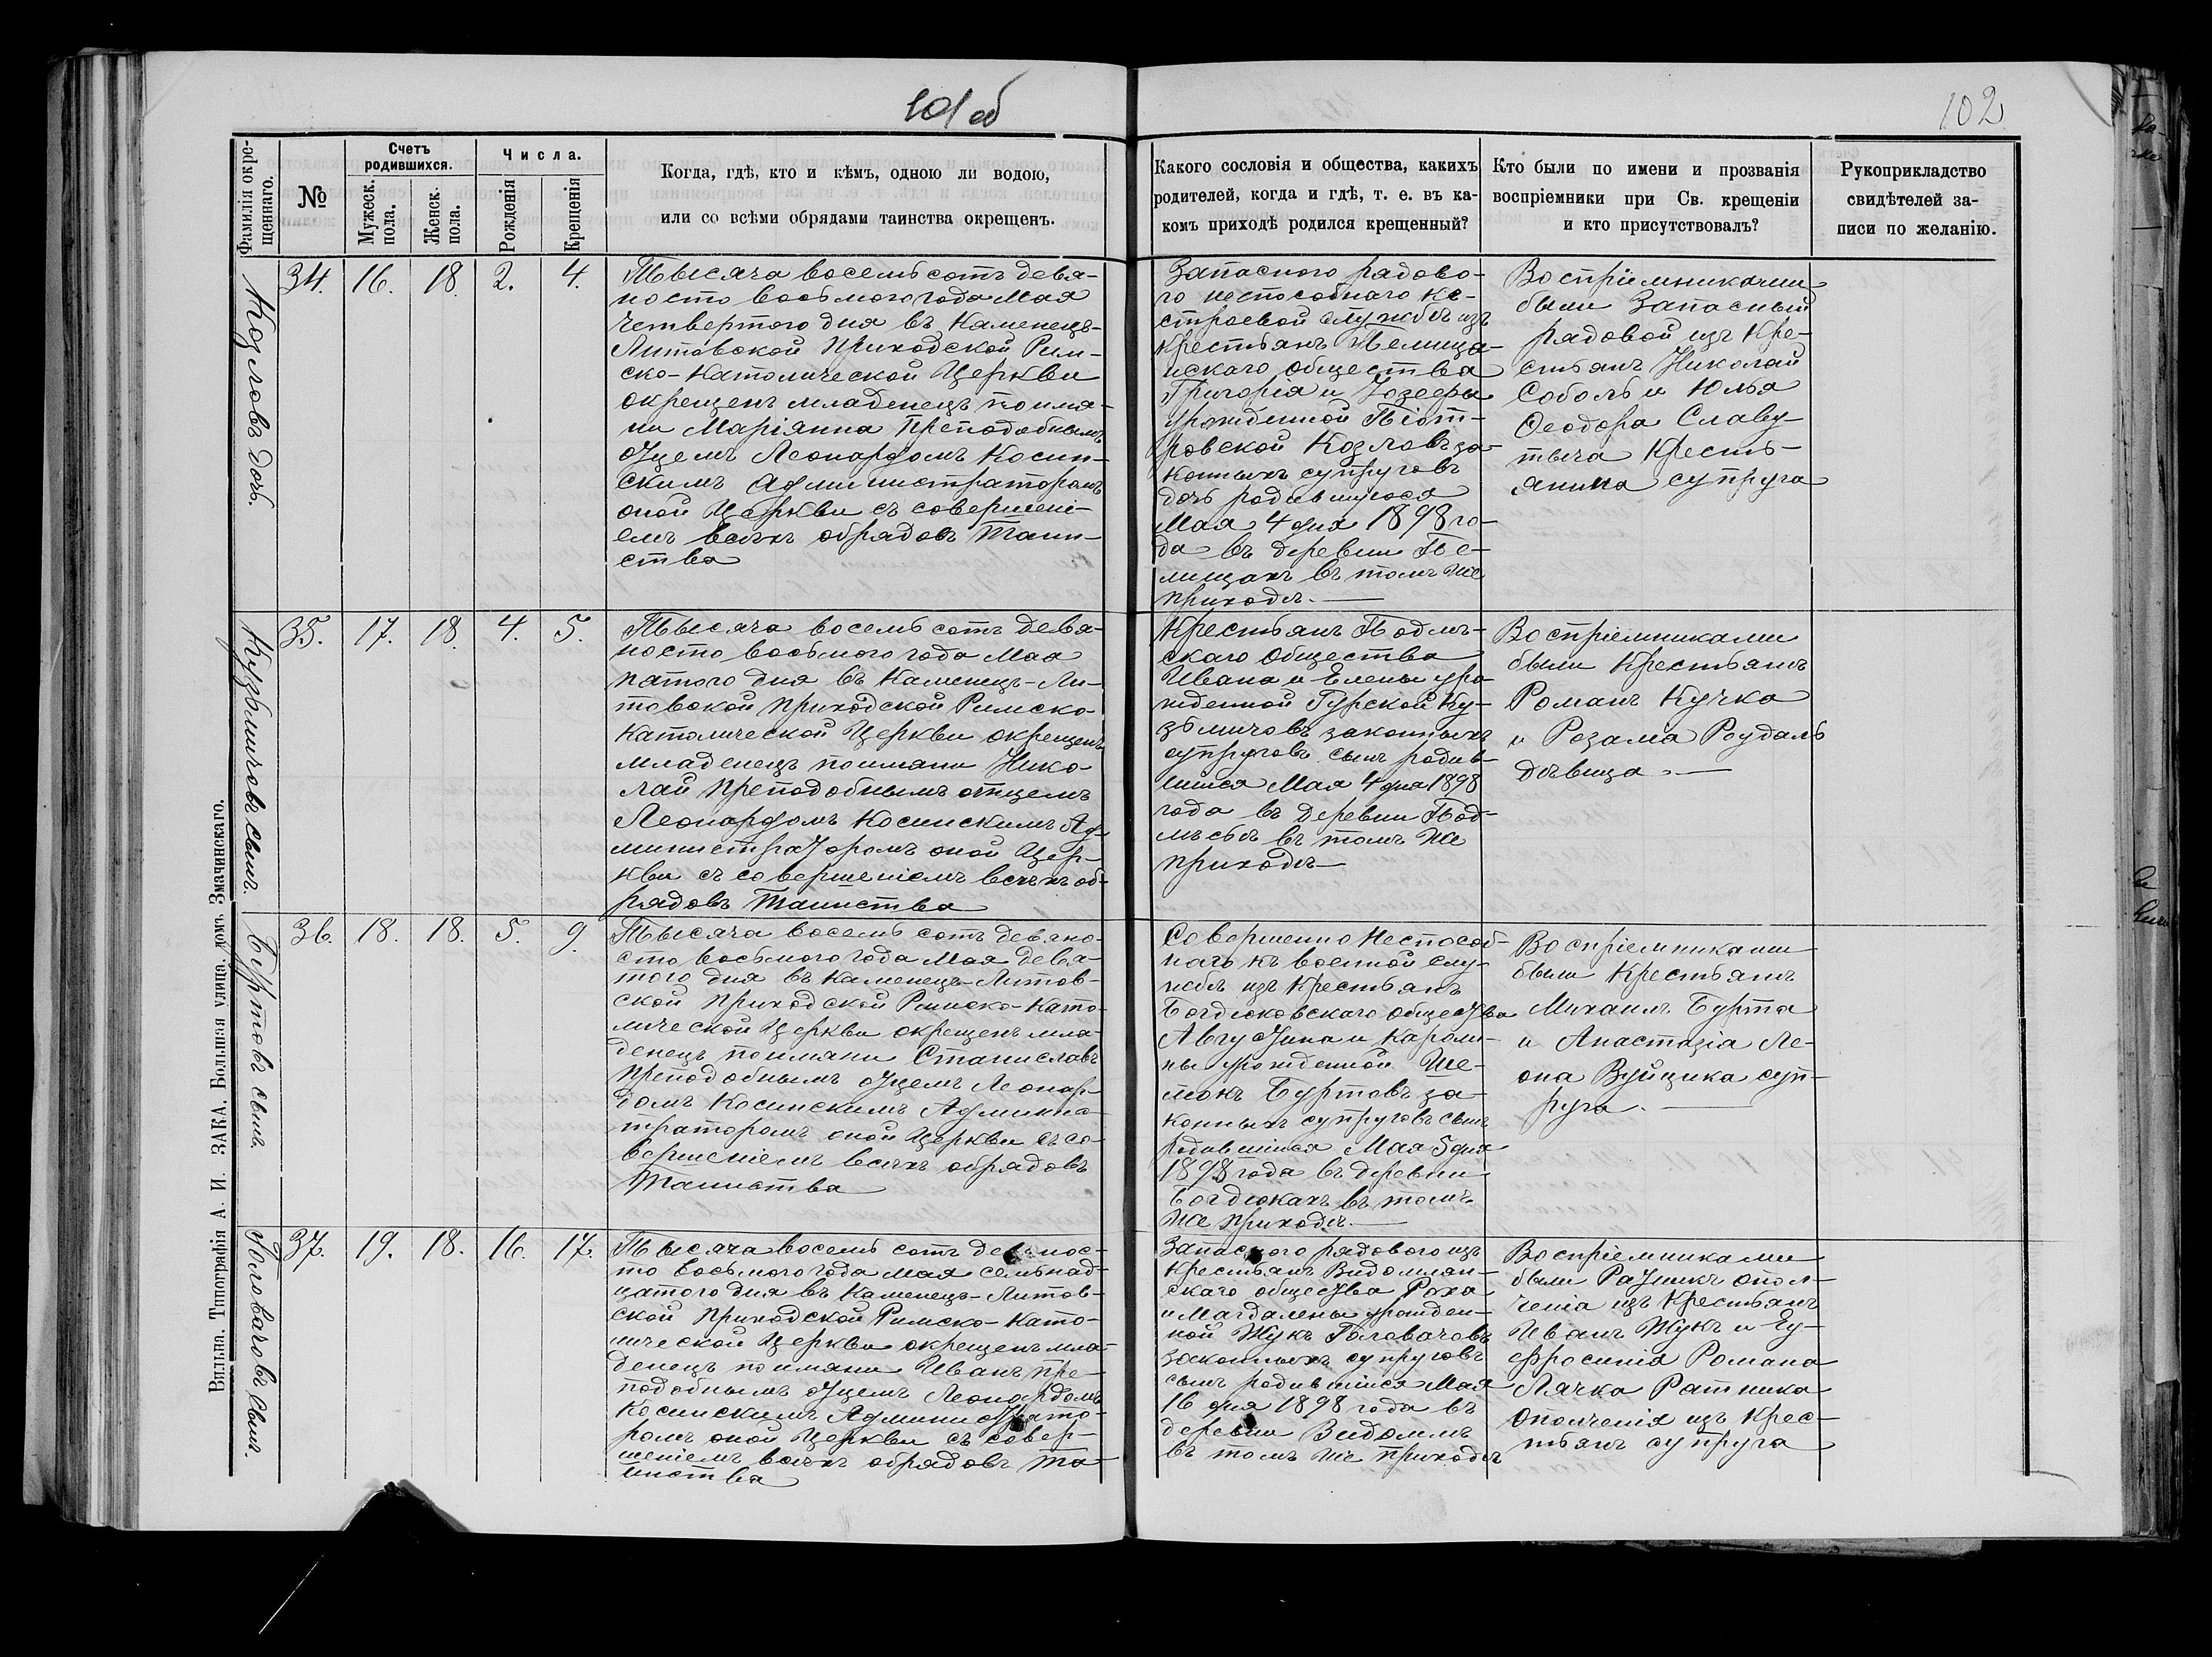 101 об
102
Фамилія окре-
щеннаго.
№
Счетъ
родившихся.
Мужеск.
пола.
Женск.
пола.
Числа.
Рожденія
Крещенія
Когда, гдѣ, кто и кѣмъ, одною ли водою,
или со всѣми обрядами таинства окрещенъ.
Какого сословія и общества, какихъ
родителей, когда и гдѣ, т. е. въ ка-
комъ приходѣ родился крещенный?
Кто были по имени и прозванія
воспріемники при Св. крещеніи
и кто присутствовалъ?
Рукоприкладство
свидѣтелей за-
писи по желанію.
Козловъ дочь.
34. 16. 18. 2. 4.
Тысяча восемьсотъ девя-
носто восьмого года Мая
Четвертого дня въ Каменецъ-
Литовской Приходской Рим-
ско-Католической Церкви
окрещенъ младенецъ по имя-
ни Маріянна Преподобнымъ
отцемъ Леонардомъ Косин-
скимъ Администраторомъ
оной Церкви съ совершені-
емъ всѣхъ обрядовъ Таин-
ства
Запасного рядово-
го неспособнаго къ
строевой службѣ изъ
Крестьянъ Пелища-
нскаго общества
Григорія и Іозефы
урожденной Піот-
ровской Козловъ за-
конныхъ супруговъ
дочь родившуюся
Мая 4 дня 1898 го-
да въ деревни Пе-
лищахъ въ томъ же
приходѣ.
Воспріемниками
были Запасный
рядовой изъ Кре-
стьянъ Николай
Соболь и Юлья
Ѳеодора Славу-
тыча Кресть-
янина супруга
Кузьмичовъ сынъ.
35. 17. 18. 4. 5.
Тысяча восемьсотъ девя-
носто восьмого года Мая
пятого дня въ Каменецъ-Ли-
товской Приходской Римско-
Католической Церкви окрещенъ
младенецъ по имяни Нико-
лай Преподобнымъ отцемъ
Леонардомъ Косинскимъ Ад-
министраторомъ оной Цер-
кви съ совершеніемъ всѣхъ об-
рядовъ Таинства
Крестьянъ Подлѣ-
скаго Общества
Ивана и Елены уро
жденной Гурской Ку-
зьмичовъ законныхъ
супруговъ сынъ родив-
шійся Мая 4 дня 1898
года въ деревни Под-
лѣсьѣ въ томъ же
приходѣ
Воспріемниками
были Крестьянъ
Романъ Кучко
и Розалія Роудаль
дѣвица.
Буртовъ сынъ.
36. 18. 18. 5. 9.
Тысяча восемьсотъ девяно-
сто восьмого года Мая девя-
того дня въ Каменецъ-Литов-
ской Приходской Римско-Като-
лической Церкви окрещенъ мла-
денецъ по имяни Станиславъ
Преподобнымъ отцемъ Леонар-
домъ Косинскимъ Админис-
траторомъ оной Церкви съ со-
вершеніемъ всѣхъ обрядовъ
Таинства
Совершенно неспособ-
наго къ военной слу-
жбѣ изъ Крестьянъ
Богдюковского общества
Августина и Кароли-
ны урожденной Ше-
мокъ Буртовъ за-
конныхъ супруговъ сынъ
родившійся Мая 5 дня
1898 года въ деревни
Богдюкахъ въ томъ
же приходѣ.
Воспріемниками
были Крестьянъ
Михаилъ Бурта
и Анастазія Ле-
она Вуйцика суп-
руга.
Головачовъ сынъ.
37. 19. 18. 16. 17.
Тысяча восемь сотъ девянос-
то восьмого года Мая семьнад-
цатого дня въ Каменецъ-Литов-
ской Приходской Римско-Като-
лической Церкви окрещенъ мла-
денецъ по имяни Иванъ Пре-
подобнымъ отцемъ Леонардомъ
Косинскимъ Администрато-
ромъ оной Церкви съ совер-
шеніемъ всѣхъ обрядовъ Та-
инства
Запасного рядового изъ
Крестьянъ Видомлян-
скаго общества Роха
и Магдалены урожден-
ной Жукъ Головачовъ
законныхъ супруговъ
сынъ родившійся Мая
16 дня 1898 года въ
деревни Видомлѣ
въ томъ же приходѣ
Воспріемниками
были Ратникъ опол-
ченія изъ Крестьянъ
Иванъ Жукъ и Еу-
фросинія Романа
Лячка Ратника
ополченія изъ Крес-
тьянъ супруга
Вильна. Типографія А. И. ЗАКА. Большая улица, домъ Змачинскаго.